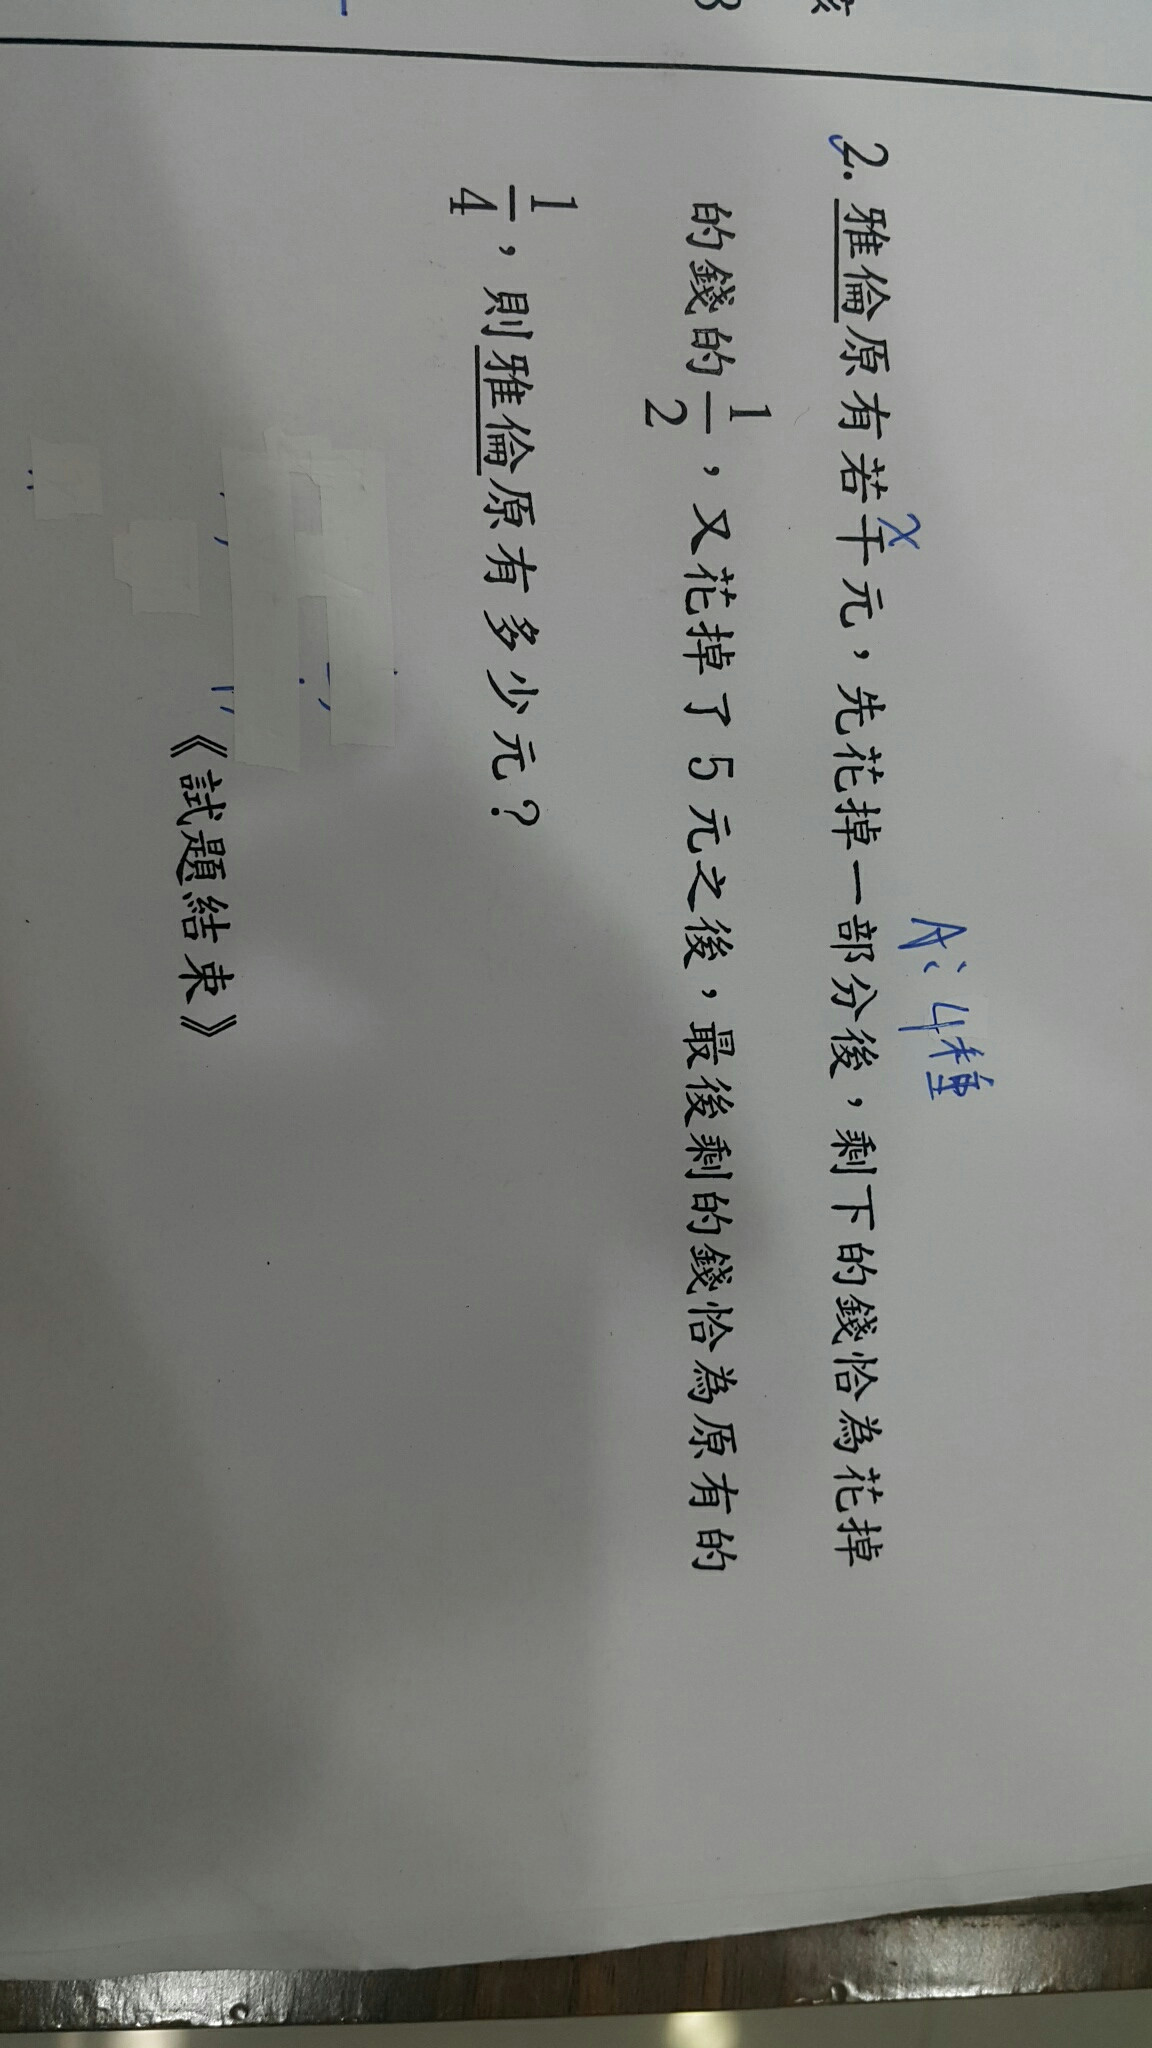 A: 4種
x
2. 雅倫原有若干元，先花掉一部分後，剩下的錢恰為花掉
的錢的1/2，又花掉了5元之後，最後剩的錢恰為原有的
1/4，則雅倫原有多少元？
《試題結束》